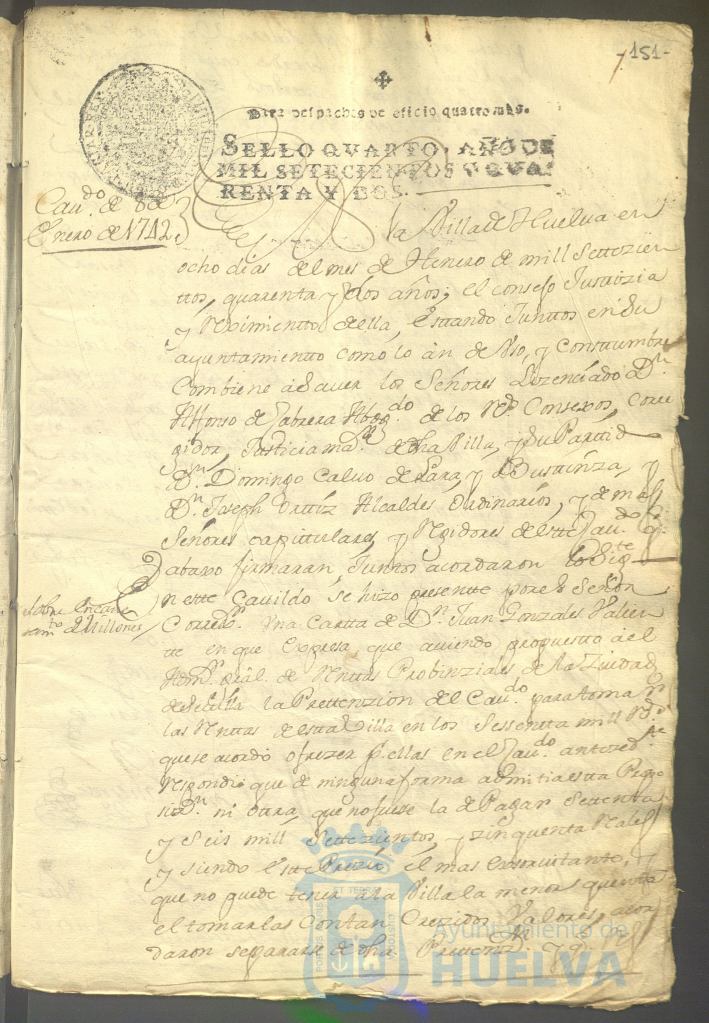 151
Para despachos de oficio quatro mrs.
SELLO QVARTO, AÑO DE
MIL SETECIENTOS Y QVA-
RENTA Y DOS.
Cavdo. de 8 de
Enero de 1742
la Villa de Huelva en
ocho dias del mes de Henero de mill Settezien
ttos, quarenta y dos años; el consejo Justizia
y Reximientto della, esttando Junttos en su
ayuntamientto como lo àn de Vso, y Constumbre
Combiene àsaver los Señores Lizenciado Dn.
Alfonso de Cabrera Abogdo. de los Rs. Consexos, Corre
gidor, Justicia mar. de dha Villa, y Su Parttido
Dn. Domingo Calvo de Lara, y Bustinza, y
Dn. Joseph Orttiz Alcaldes Ordinarios, y demas
Señores capittulares, y Regidores deste Cavdo. q.
abaxo firmaran, Junttos acordaron lo sigte.
sobre encavezn
amto. de Millones
n este Cavildo se hizo presentte por el Señor
Corredor. Vna Cartta de Dn. Juan Gonzales Valien
te en que Expresa que aviendo propuestto àel
de Renttas Probinziales de la Ziudad
de Sevilla la Prettenzion del Cavdo. para tomar
las Renttas de estta Villa en los Sessentta mill Rs.
que se acordò ofrezer p. ellas en el Cavdo. antezedte.
respondiò que de ninguna forma admitia estta Propo
sizn. ni ottra, que no fuese la de Pagar Settentta
y Seis mill Settezienttos, y zinquentta Reales
y siendo estte Prezio el mas exsorvitante, y
que no puede tener a la Villa la menor quentta
el tomarlas Con tan Crezidos Valores, acor
daron separarse de dha. Prettenn.
Ayuntamiento de
HUELVA